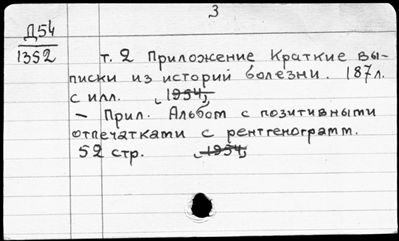 3
Д54
1352
т. 2 Приложение Краткие вы-
писки из историй болезни. 187л.
с илл. 1954,
- Прил. Альбом с позитивными
отпечатками с рентгенограмм.
52 стр. 1954,